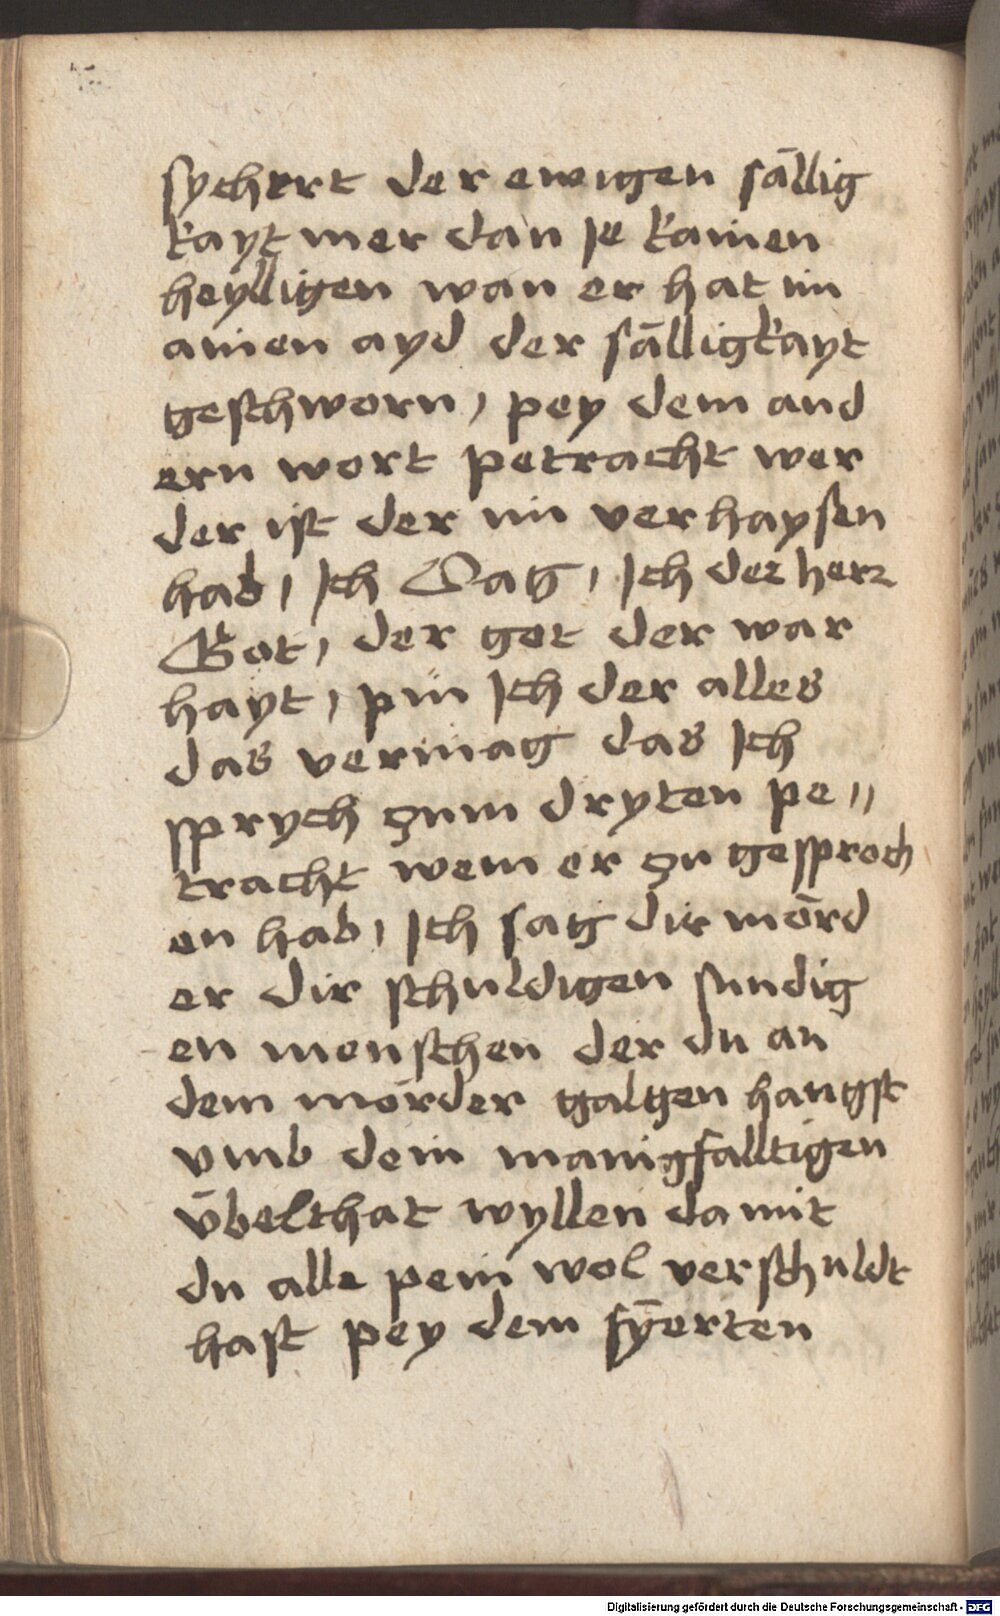 sychert der ewigen sällig
kayt mer dan je kainen
heylligen wan er hat im
ainen ayd der sälligkayt
geschworn, pey dem and
ern wort petracht wer
der ist der im verhaysen
hab, Ich Sag, Ich der herr
Got, der got der war
hayt, pin Ich der alles
das vermag das Ich
sprych zum dryten pe〃
tracht wem er zu gesproch
en hab, Ich sag dir mörd
er dir schuldigen sundig
en menschen der du an
dem mörder galgen hangst
vmb dein manigfalltigen
v̈belthat wyllen da mit
du alle pein wol verschuldt
hast pey dem fÿerten
Digitalisierung gefördert durch die Deutsche Forschungsgemeinschaft - DFG